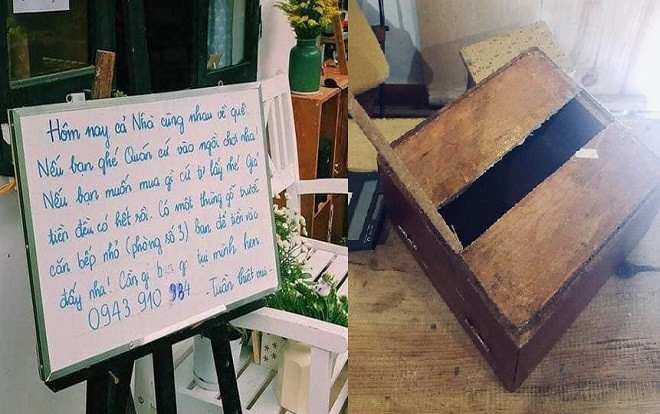 Hôm nay cả Nhà cùng nhau về quê.
Nếu bạn ghé Quán cứ vào ngồi chơi nha!
Nếu bạn muốn mua gì cứ tự lấy nhé! Giá
tiền đều có hết rồi. Có một thùng gỗ trước
căn bếp nhỏ (phòng số 3) bạn để tiền vào
đấy nha! Cần gì gọi tụi mình hen
0943 910 984 - Tuần thiết mộc -